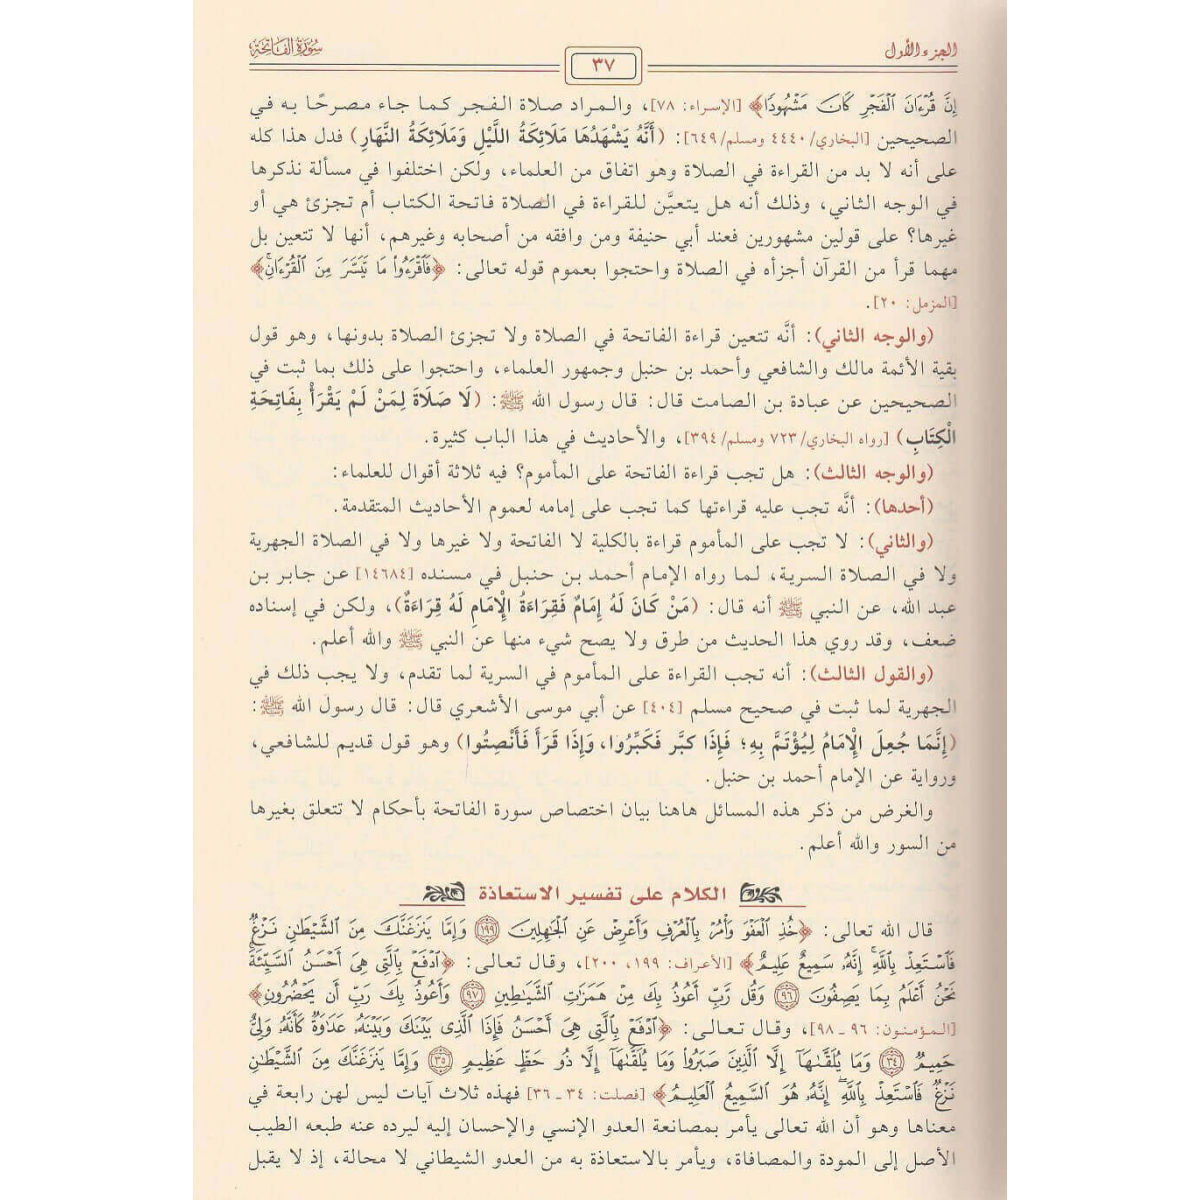 الجزء الأول
٣٧
سورة الفاتحة
إِنَّ قُرْءَانَ ٱلْفَجْرِ كَانَ مَشْهُودًا﴾ [الإسراء: ٧٨]، والمراد صلاة الفجر كما جاء مصرحًا به في
الصحيحين [البخاري/ ٤٤٤٠ ومسلم/ ٦٤٩]: (أَنَّهُ يَشْهَدُهَا مَلَائِكَةُ اللَّيْلِ وَمَلَائِكَةُ النَّهَارِ) فدل هذا كله
على أنه لا بد من القراءة في الصلاة وهو اتفاق من العلماء، ولكن اختلفوا في مسألة نذكرها
في الوجه الثاني، وذلك أنه هل يتعيَّن للقراءة في الصلاة فاتحة الكتاب أم تجزئ هي أو
غيرها؟ على قولين مشهورين فعند أبي حنيفة ومن وافقه من أصحابه وغيرهم، أنها لا تتعين بل
مهما قرأ من القرآن أجزأه في الصلاة واحتجوا بعموم قوله تعالى: ﴿فَٱقْرَءُوا۟ مَا تَيَسَّرَ مِنَ ٱلْقُرْءَانِ﴾
[المزمل: ٢٠].
(والوجه الثاني): أنَّه تتعين قراءة الفاتحة في الصلاة ولا تجزئ الصلاة بدونها، وهو قول
بقية الأئمة مالك والشافعي وأحمد بن حنبل وجمهور العلماء، واحتجوا على ذلك بما ثبت في
الصحيحين عن عبادة بن الصامت قال: قال رسول الله ﷺ: (لَا صَلَاةَ لِمَنْ لَمْ يَقْرَأْ بِفَاتِحَةِ
الْكِتَابِ) [رواه البخاري/ ٧٢٣ ومسلم/ ٣٩٤]، والأحاديث في هذا الباب كثيرة.
(والوجه الثالث): هل تجب قراءة الفاتحة على المأموم؟ فيه ثلاثة أقوال للعلماء:
(أحدها): أنَّه تجب عليه قراءتها كما تجب على إمامه لعموم الأحاديث المتقدمة.
(والثاني): لا تجب على المأموم قراءة بالكلية لا الفاتحة ولا غيرها ولا في الصلاة الجهرية
ولا في الصلاة السرية، لما رواه الإمام أحمد بن حنبل في مسنده [١٤٦٨٤] عن جابر بن
عبد الله، عن النبي ﷺ أنه قال: (مَنْ كَانَ لَهُ إِمَامٌ فَقِرَاءَةُ الْإِمَامِ لَهُ قِرَاءَةٌ)، ولكن في إسناده
ضعف، وقد روي هذا الحديث من طرق ولا يصح شيء منها عن النبي ﷺ والله أعلم.
(والقول الثالث): أنه تجب القراءة على المأموم في السرية لما تقدم، ولا يجب ذلك في
الجهرية لما ثبت في صحيح مسلم [٤٠٤] عن أبي موسى الأشعري قال: قال رسول الله ﷺ:
(إِنَّمَا جُعِلَ الْإِمَامُ لِيُؤْتَمَّ بِهِ؛ فَإِذَا كبَّر فَكَبِّرُوا، وَإِذَا قَرَأَ فَأَنْصِتُوا) وهو قول قديم للشافعي،
ورواية عن الإمام أحمد بن حنبل.
والغرض من ذكر هذه المسائل هاهنا بيان اختصاص سورة الفاتحة بأحكام لا تتعلق بغيرها
من السور والله أعلم.
الكلام على تفسير الاستعاذة
قال الله تعالى: ﴿خُذِ ٱلْعَفْوَ وَأْمُرْ بِٱلْعُرْفِ وَأَعْرِضْ عَنِ ٱلْجَٰهِلِينَ ١٩٩ وَإِمَّا يَنزَغَنَّكَ مِنَ ٱلشَّيْطَٰنِ نَزْغٌ
فَٱسْتَعِذْ بِٱللَّهِ إِنَّهُۥ سَمِيعٌ عَلِيمٌ﴾ [الأعراف: ١٩٩، ٢٠٠]، وقال تعالى: ﴿ٱدْفَعْ بِٱلَّتِى هِىَ أَحْسَنُ ٱلسَّيِّئَةَ
نَحْنُ أَعْلَمُ بِمَا يَصِفُونَ ٩٦ وَقُل رَّبِّ أَعُوذُ بِكَ مِنْ هَمَزَٰتِ ٱلشَّيَٰطِينِ ٩٧ وَأَعُوذُ بِكَ رَبِّ أَن يَحْضُرُونِ﴾
[المؤمنون: ٩٦ ـ ٩٨]، وقال تعالى: ﴿ٱدْفَعْ بِٱلَّتِى هِىَ أَحْسَنُ فَإِذَا ٱلَّذِى بَيْنَكَ وَبَيْنَهُۥ عَدَٰوَةٌ كَأَنَّهُۥ وَلِىٌّ
حَمِيمٌ ٣٤ وَمَا يُلَقَّىٰهَآ إِلَّا ٱلَّذِينَ صَبَرُوا۟ وَمَا يُلَقَّىٰهَآ إِلَّا ذُو حَظٍّ عَظِيمٍ ٣٥ وَإِمَّا يَنزَغَنَّكَ مِنَ ٱلشَّيْطَٰنِ
نَزْغٌ فَٱسْتَعِذْ بِٱللَّهِ إِنَّهُۥ هُوَ ٱلسَّمِيعُ ٱلْعَلِيمُ﴾ [فصلت: ٣٤ ـ ٣٦] فهذه ثلاث آيات ليس لهن رابعة في
معناها وهو أن الله تعالى يأمر بمصانعة العدو الإنسي والإحسان إليه ليرده عنه طبعه الطيب
الأصل إلى المودة والمصافاة، ويأمر بالاستعاذة به من العدو الشيطاني لا محالة، إذ لا يقبل